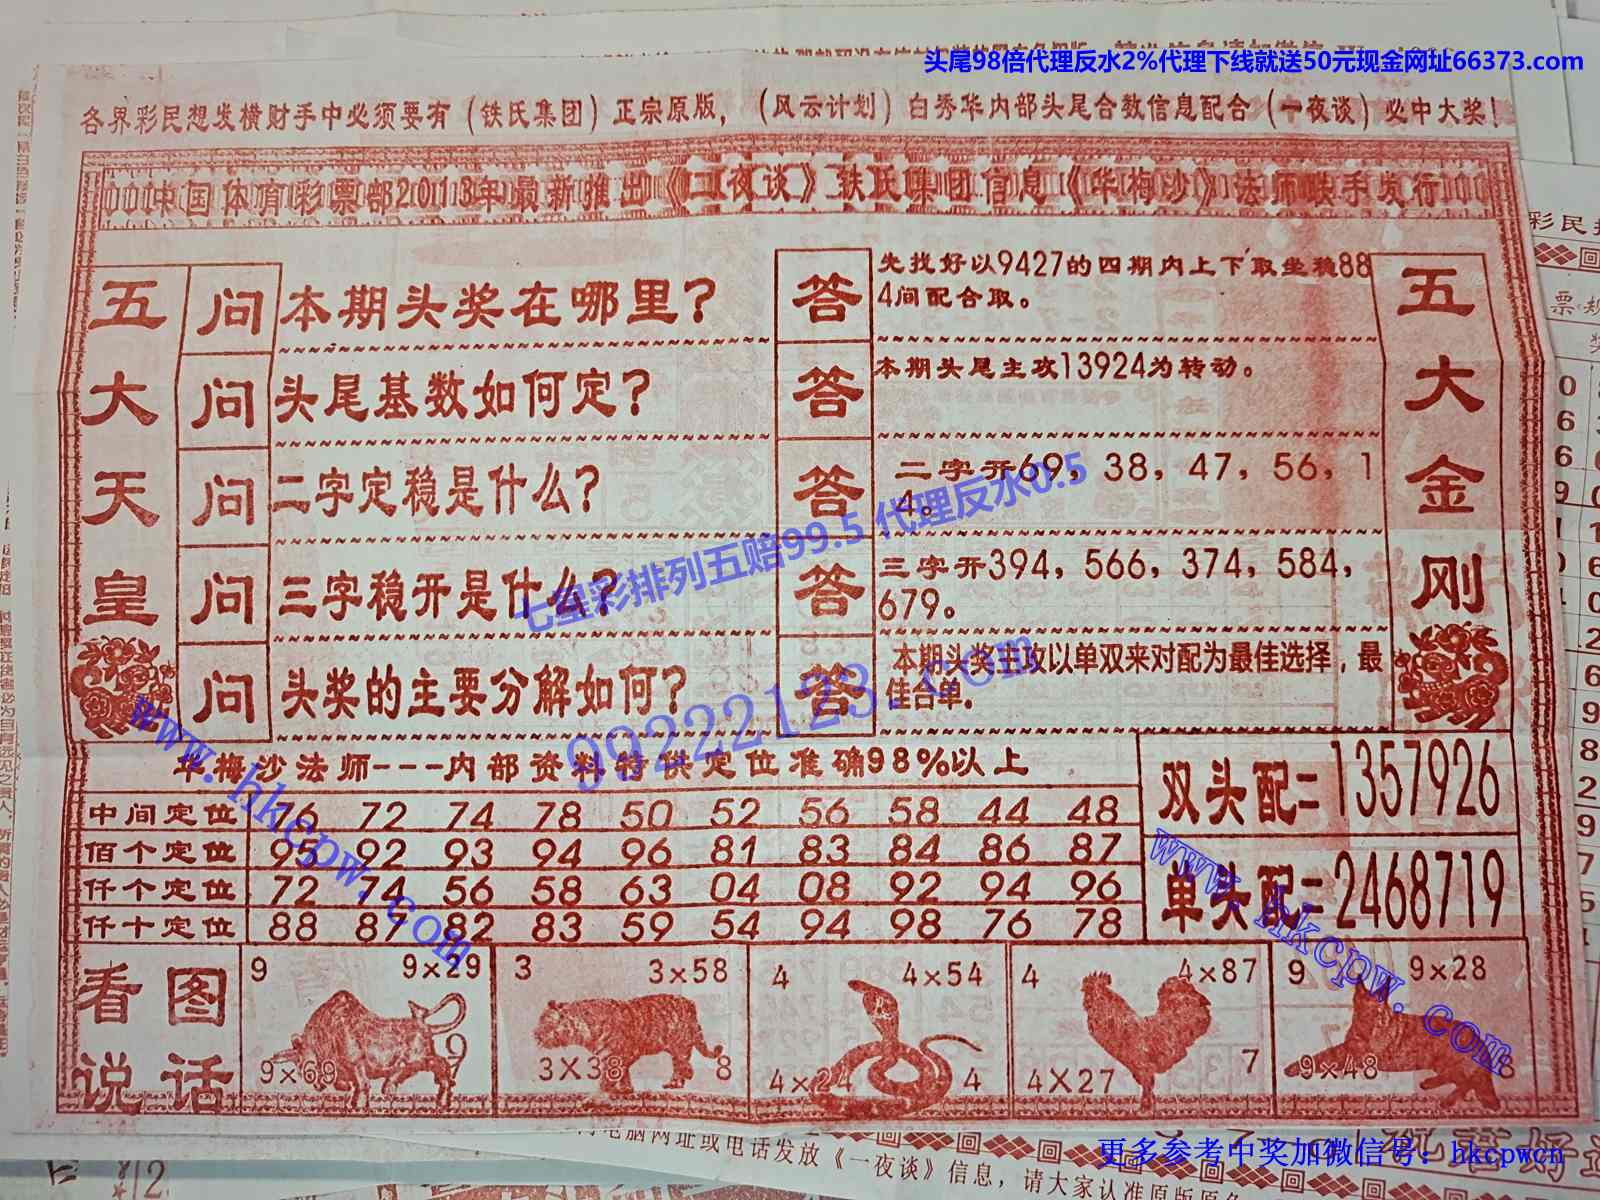 头尾98倍代理反水2%代理下线就送50元现金网址66373.com
各界彩民想发横财手中必须要有（铁氏集团）正宗原版，（风云计划）白秀华内部头尾合数信息配合（一夜谈）必中大奖！
中国体育彩票部2013年最新推出《一夜谈》铁氏集团信息《华梅沙》法师联手发行
五大天皇
问 本期头奖在哪里？
答 先找好以9427的四期内上下取坐稳88
4间配合取。
问 头尾基数如何定？
答 本期头尾主攻13924为转动。
问 二字定稳是什么？
答 二字开69，38，47，56，1
4。
问 三字稳开是什么？
答 三字开394，566，374，584，
679。
问 头奖的主要分解如何？
答 本期头奖主攻以单双来对配为最佳选择，最
佳合单.
五大金刚
七星彩排列五赔99.5 代理反水0.5
99222123.com
www.hkcpw.com
华梅沙法师---内部资料特供定位准确98%以上
中间定位 76 72 74 78 50 52 56 58 44 48
佰个定位 95 92 93 94 96 81 83 84 86 87
仟个定位 72 74 56 58 63 04 08 92 94 96
仟十定位 88 87 82 83 59 54 94 98 76 78
双头配=1357926
单头配=2468719
www.hkcpw.com
看图
说话
9 9×29
9×69 9 7
3 3×58
3×38 8
4 4×54
4×24 4
4 4×87
4×27 7
9 9×28
9×48 8
电脑网址或电话发放《一夜谈》信息，请大家认准原版原色
更多参考中奖加微信号：hkcpwcn